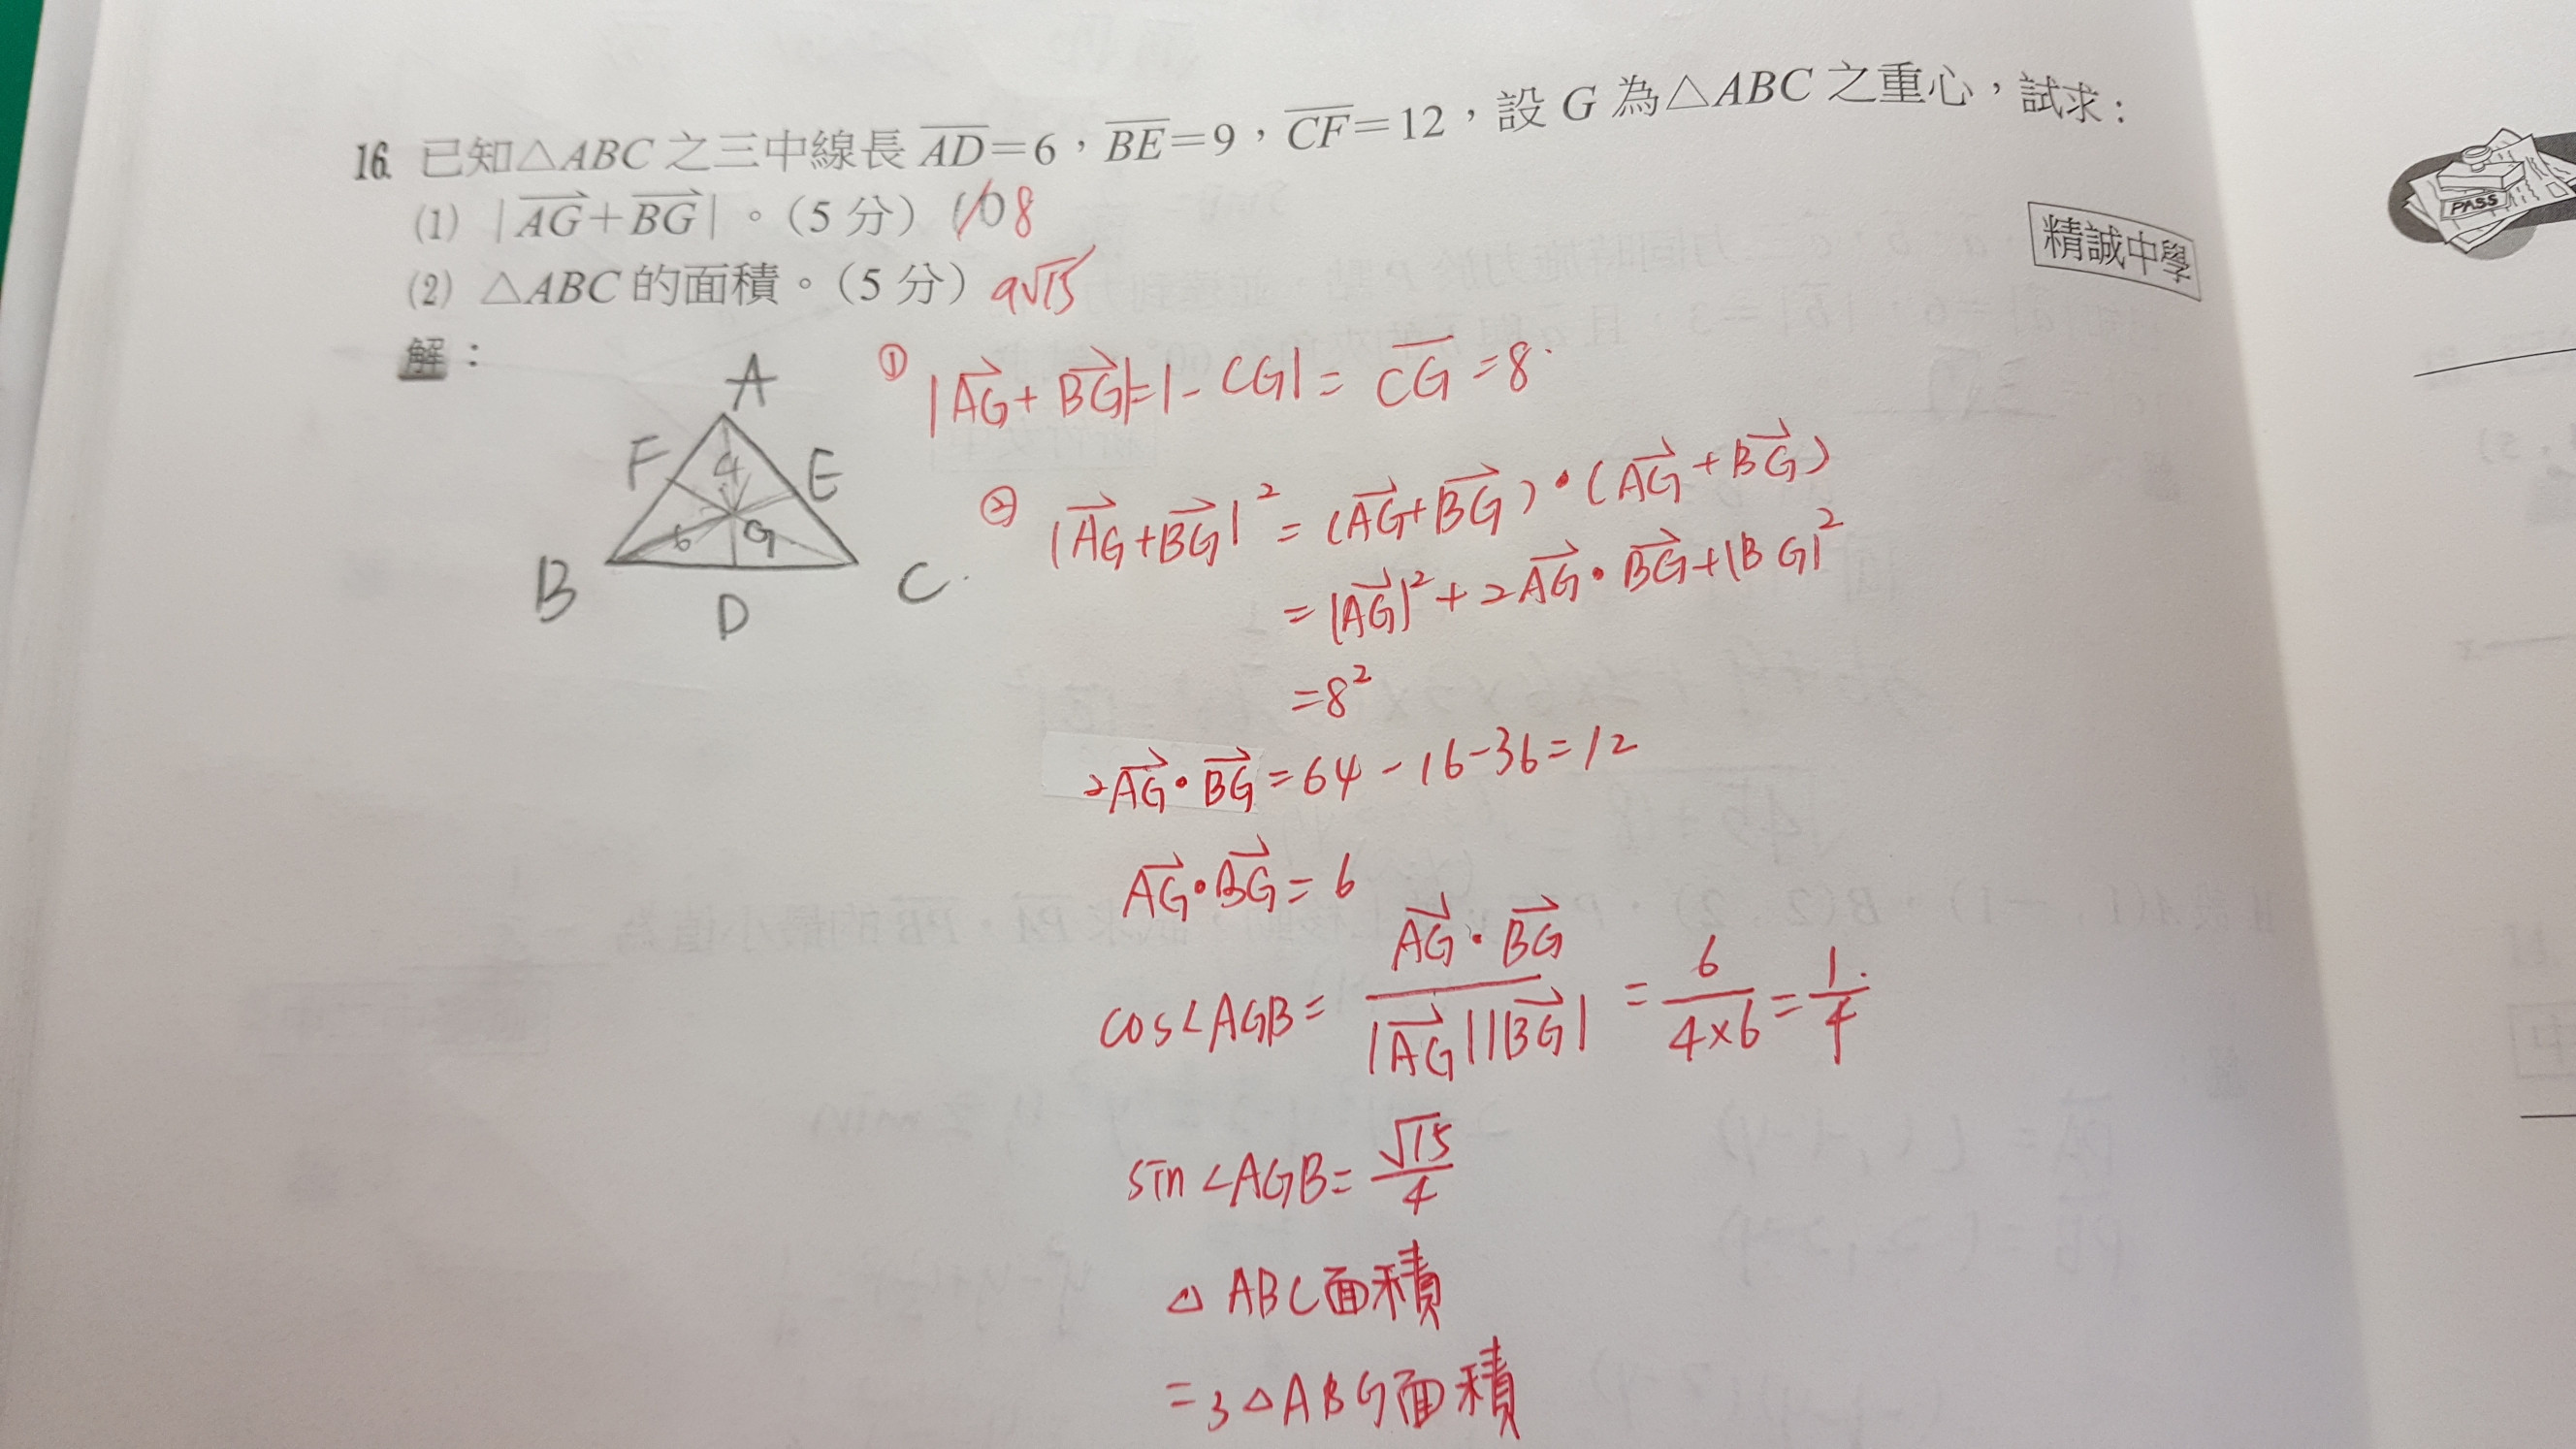 16. 已知△ABC之三中線長 AD=6，BE=9，CF=12，設 G 為△ABC 之重心，試求：
(1) |AG+BG|。（5分） 10 8
(2) △ABC的面積。（5分） 9√15
精誠中學
PASS
解：
A
F
4
E
6
G
B
D
C
① |AG+BG|=|-CG|=CG=8
② |AG+BG|²=(AG+BG)·(AG+BG)
=|AG|²+2AG·BG+|BG|²
=8²
2AG·BG=64-16-36=12
AG·BG=6
cos∠AGB=AG·BG/|AG||BG|=6/4×6=1/4
sin∠AGB=√15/4
△ABC面積
=3△ABG面積